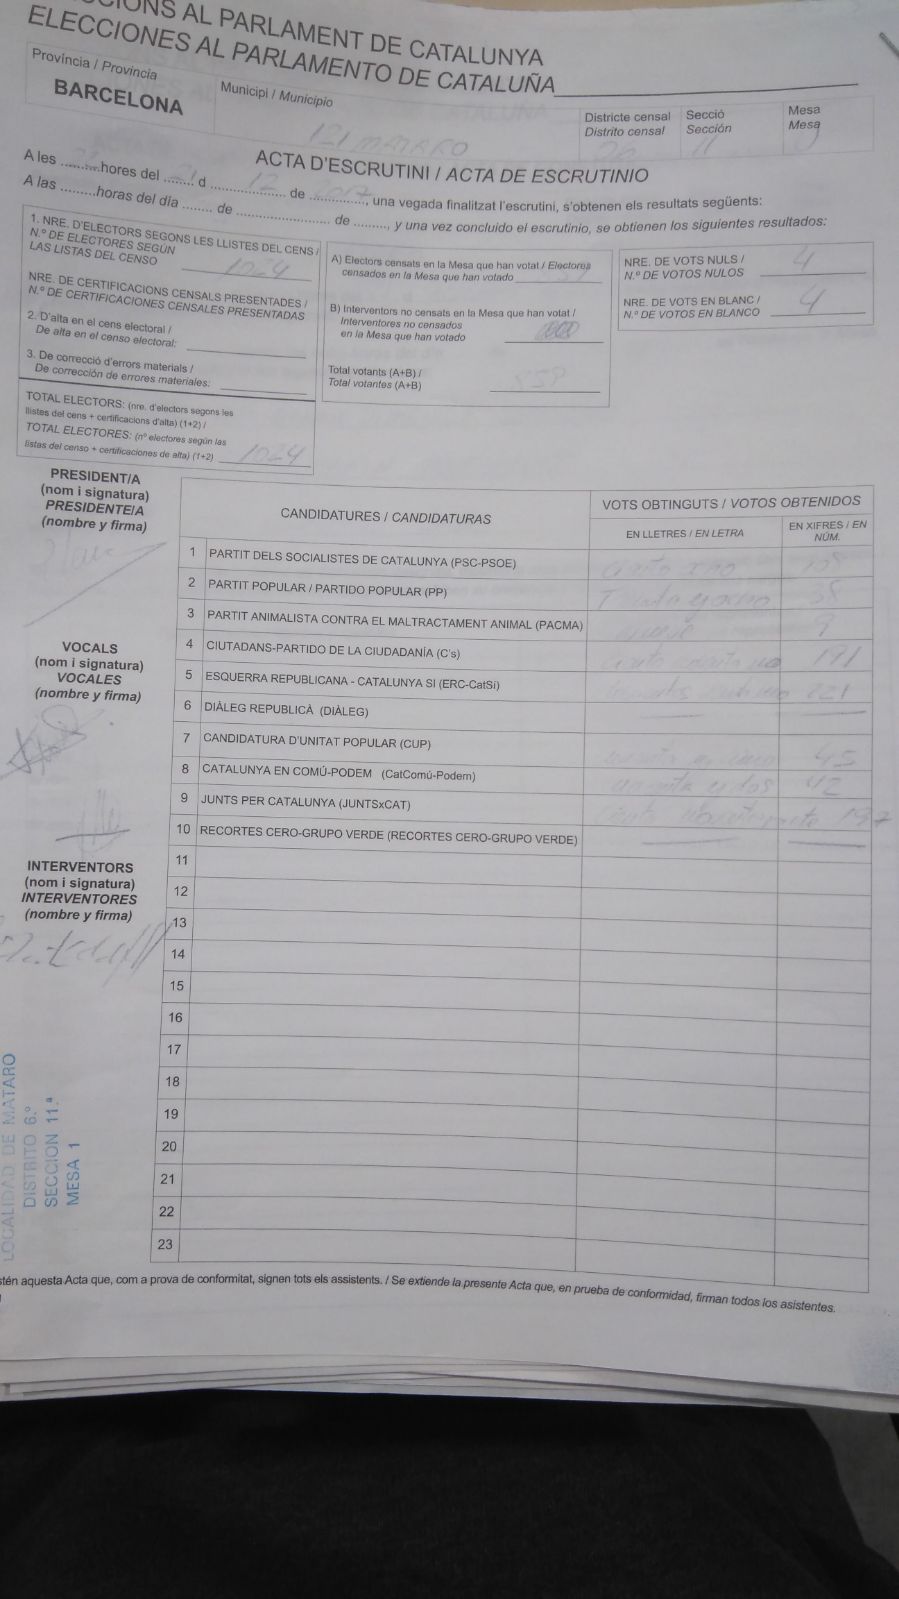 CIONS AL PARLAMENT DE CATALUNYA
ELECCIONES AL PARLAMENTO DE CATALUÑA
Província / Provincia
BARCELONA
Municipi / Municipio
121 MATARO
Districte censal
Distrito censal
Secció
Sección
11
Mesa
Mesa
ACTA D'ESCRUTINI / ACTA DE ESCRUTINIO
A les ........hores del ........ d 12 de 2017, una vegada finalitzat l'escrutini, s'obtenen els resultats següents:
A las ........horas del día ........ de ........................ de ........, y una vez concluido el escrutinio, se obtienen los siguientes resultados:
1. NRE. D'ELECTORS SEGONS LES LLISTES DEL CENS /
N.º DE ELECTORES SEGÚN
LAS LISTAS DEL CENSO 1024
NRE. DE CERTIFICACIONS CENSALS PRESENTADES /
N.º DE CERTIFICACIONES CENSALES PRESENTADAS
2. D'alta en el cens electoral /
De alta en el censo electoral:
3. De correcció d'errors materials /
De corrección de errores materiales:
TOTAL ELECTORS: (nre. d'electors segons les
llistes del cens + certificacions d'alta) (1+2) /
TOTAL ELECTORES: (nº electores según las
listas del censo + certificaciones de alta) (1+2) 1024
A) Electors censats en la Mesa que han votat / Electores
censados en la Mesa que han votado
B) Interventors no censats en la Mesa que han votat /
Interventores no censados
en la Mesa que han votado
Total votants (A+B) /
Total votantes (A+B) 859
NRE. DE VOTS NULS /
N.º DE VOTOS NULOS 4
NRE. DE VOTS EN BLANC /
N.º DE VOTOS EN BLANCO 4
PRESIDENT/A
(nom i signatura)
PRESIDENTE/A
(nombre y firma)
VOCALS
(nom i signatura)
VOCALES
(nombre y firma)
INTERVENTORS
(nom i signatura)
INTERVENTORES
(nombre y firma)
CANDIDATURES / CANDIDATURAS
VOTS OBTINGUTS / VOTOS OBTENIDOS
EN LLETRES / EN LETRA
EN XIFRES / EN
NÚM.
1 PARTIT DELS SOCIALISTES DE CATALUNYA (PSC-PSOE)
2 PARTIT POPULAR / PARTIDO POPULAR (PP) Treinta y ocho 38
3 PARTIT ANIMALISTA CONTRA EL MALTRACTAMENT ANIMAL (PACMA) nueve 9
4 CIUTADANS-PARTIDO DE LA CIUDADANÍA (C's) 191
5 ESQUERRA REPUBLICANA - CATALUNYA SI (ERC-CatSí) 221
6 DIÀLEG REPUBLICÀ (DIÀLEG)
7 CANDIDATURA D'UNITAT POPULAR (CUP) 45
8 CATALUNYA EN COMÚ-PODEM (CatComú-Podem) cuarenta y dos 42
9 JUNTS PER CATALUNYA (JUNTSxCAT) 197
10 RECORTES CERO-GRUPO VERDE (RECORTES CERO-GRUPO VERDE)
11
12
13
14
15
16
17
18
19
20
21
22
23
LOCALIDAD DE MATARO
DISTRITO 6.º
SECCION 11.ª
MESA 1
stén aquesta Acta que, com a prova de conformitat, signen tots els assistents. / Se extiende la presente Acta que, en prueba de conformidad, firman todos los asistentes.